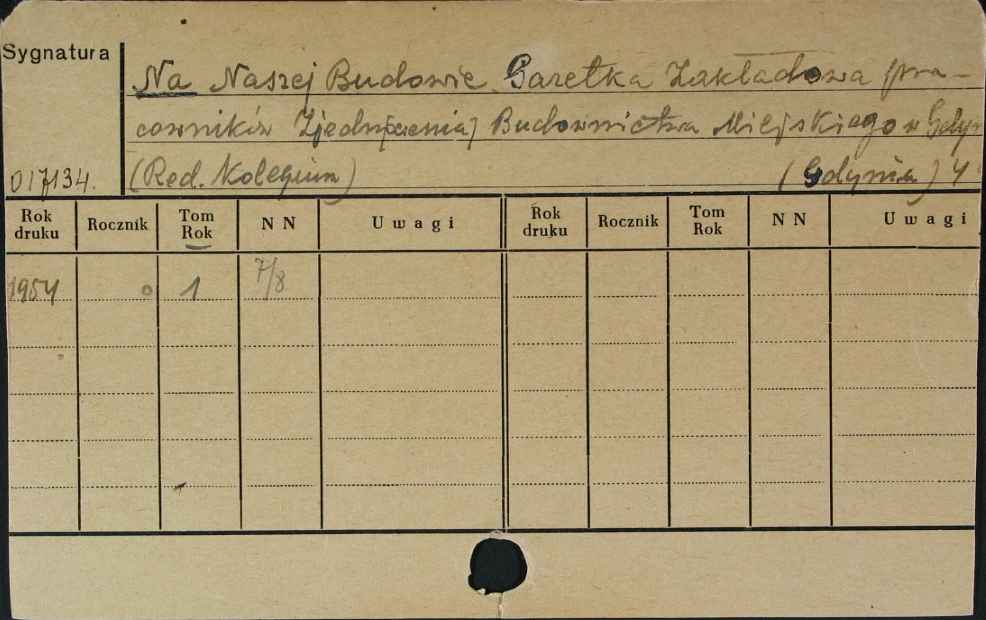 Sygnatura
Na Naszej Budowie. Gazetka Zakładowa pra-
cowników Zjednoczenia Budownictwa Miejskiego w Gdyn
017134. (Red. Kolegium) (Gdynia) 4
Rok druku Rocznik Tom Rok NN Uwagi Rok druku Rocznik Tom Rok NN Uwagi
1954 1 7/8